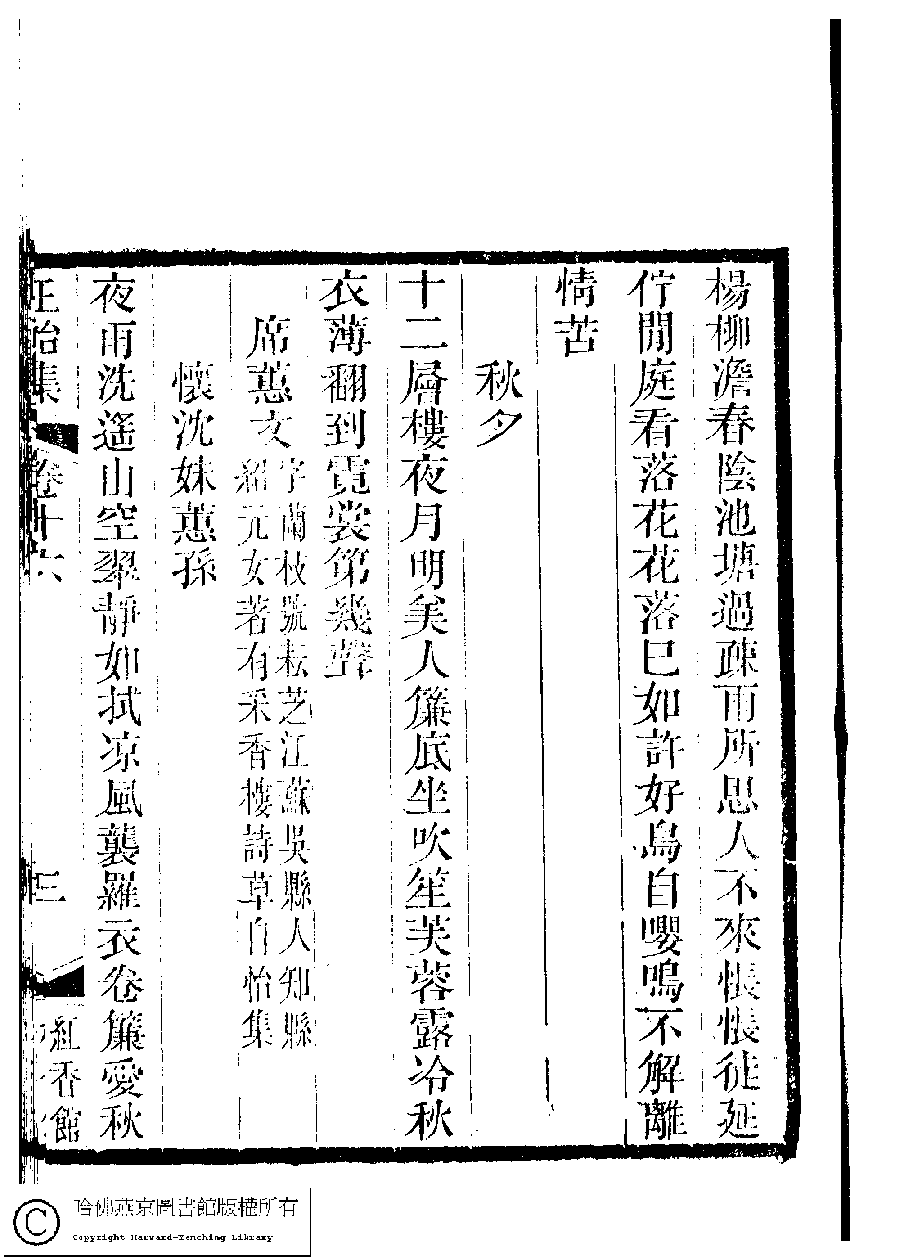 楊柳澹春陰池塘過疎雨所思人不來悵悵徒延
佇閒庭看落花花落已如許好鳥自嚶鳴不解離
情苦
秋夕
十二層樓夜月明美人簾底坐吹笙芙蓉露冷秋
衣薄翻到霓裳第幾聲
席蕙文字蘭枝號耘芝江蘇吳縣人知縣
紹元女著有采香樓詩草自怡集
懷沈妹蕙孫
夜雨洗遙山空翠靜如拭凉風襲羅衣卷簾愛秋
正始集 卷十六 三 紅香館
哈佛燕京圖書館版權所有
Copyright Harvard-Yenching Library